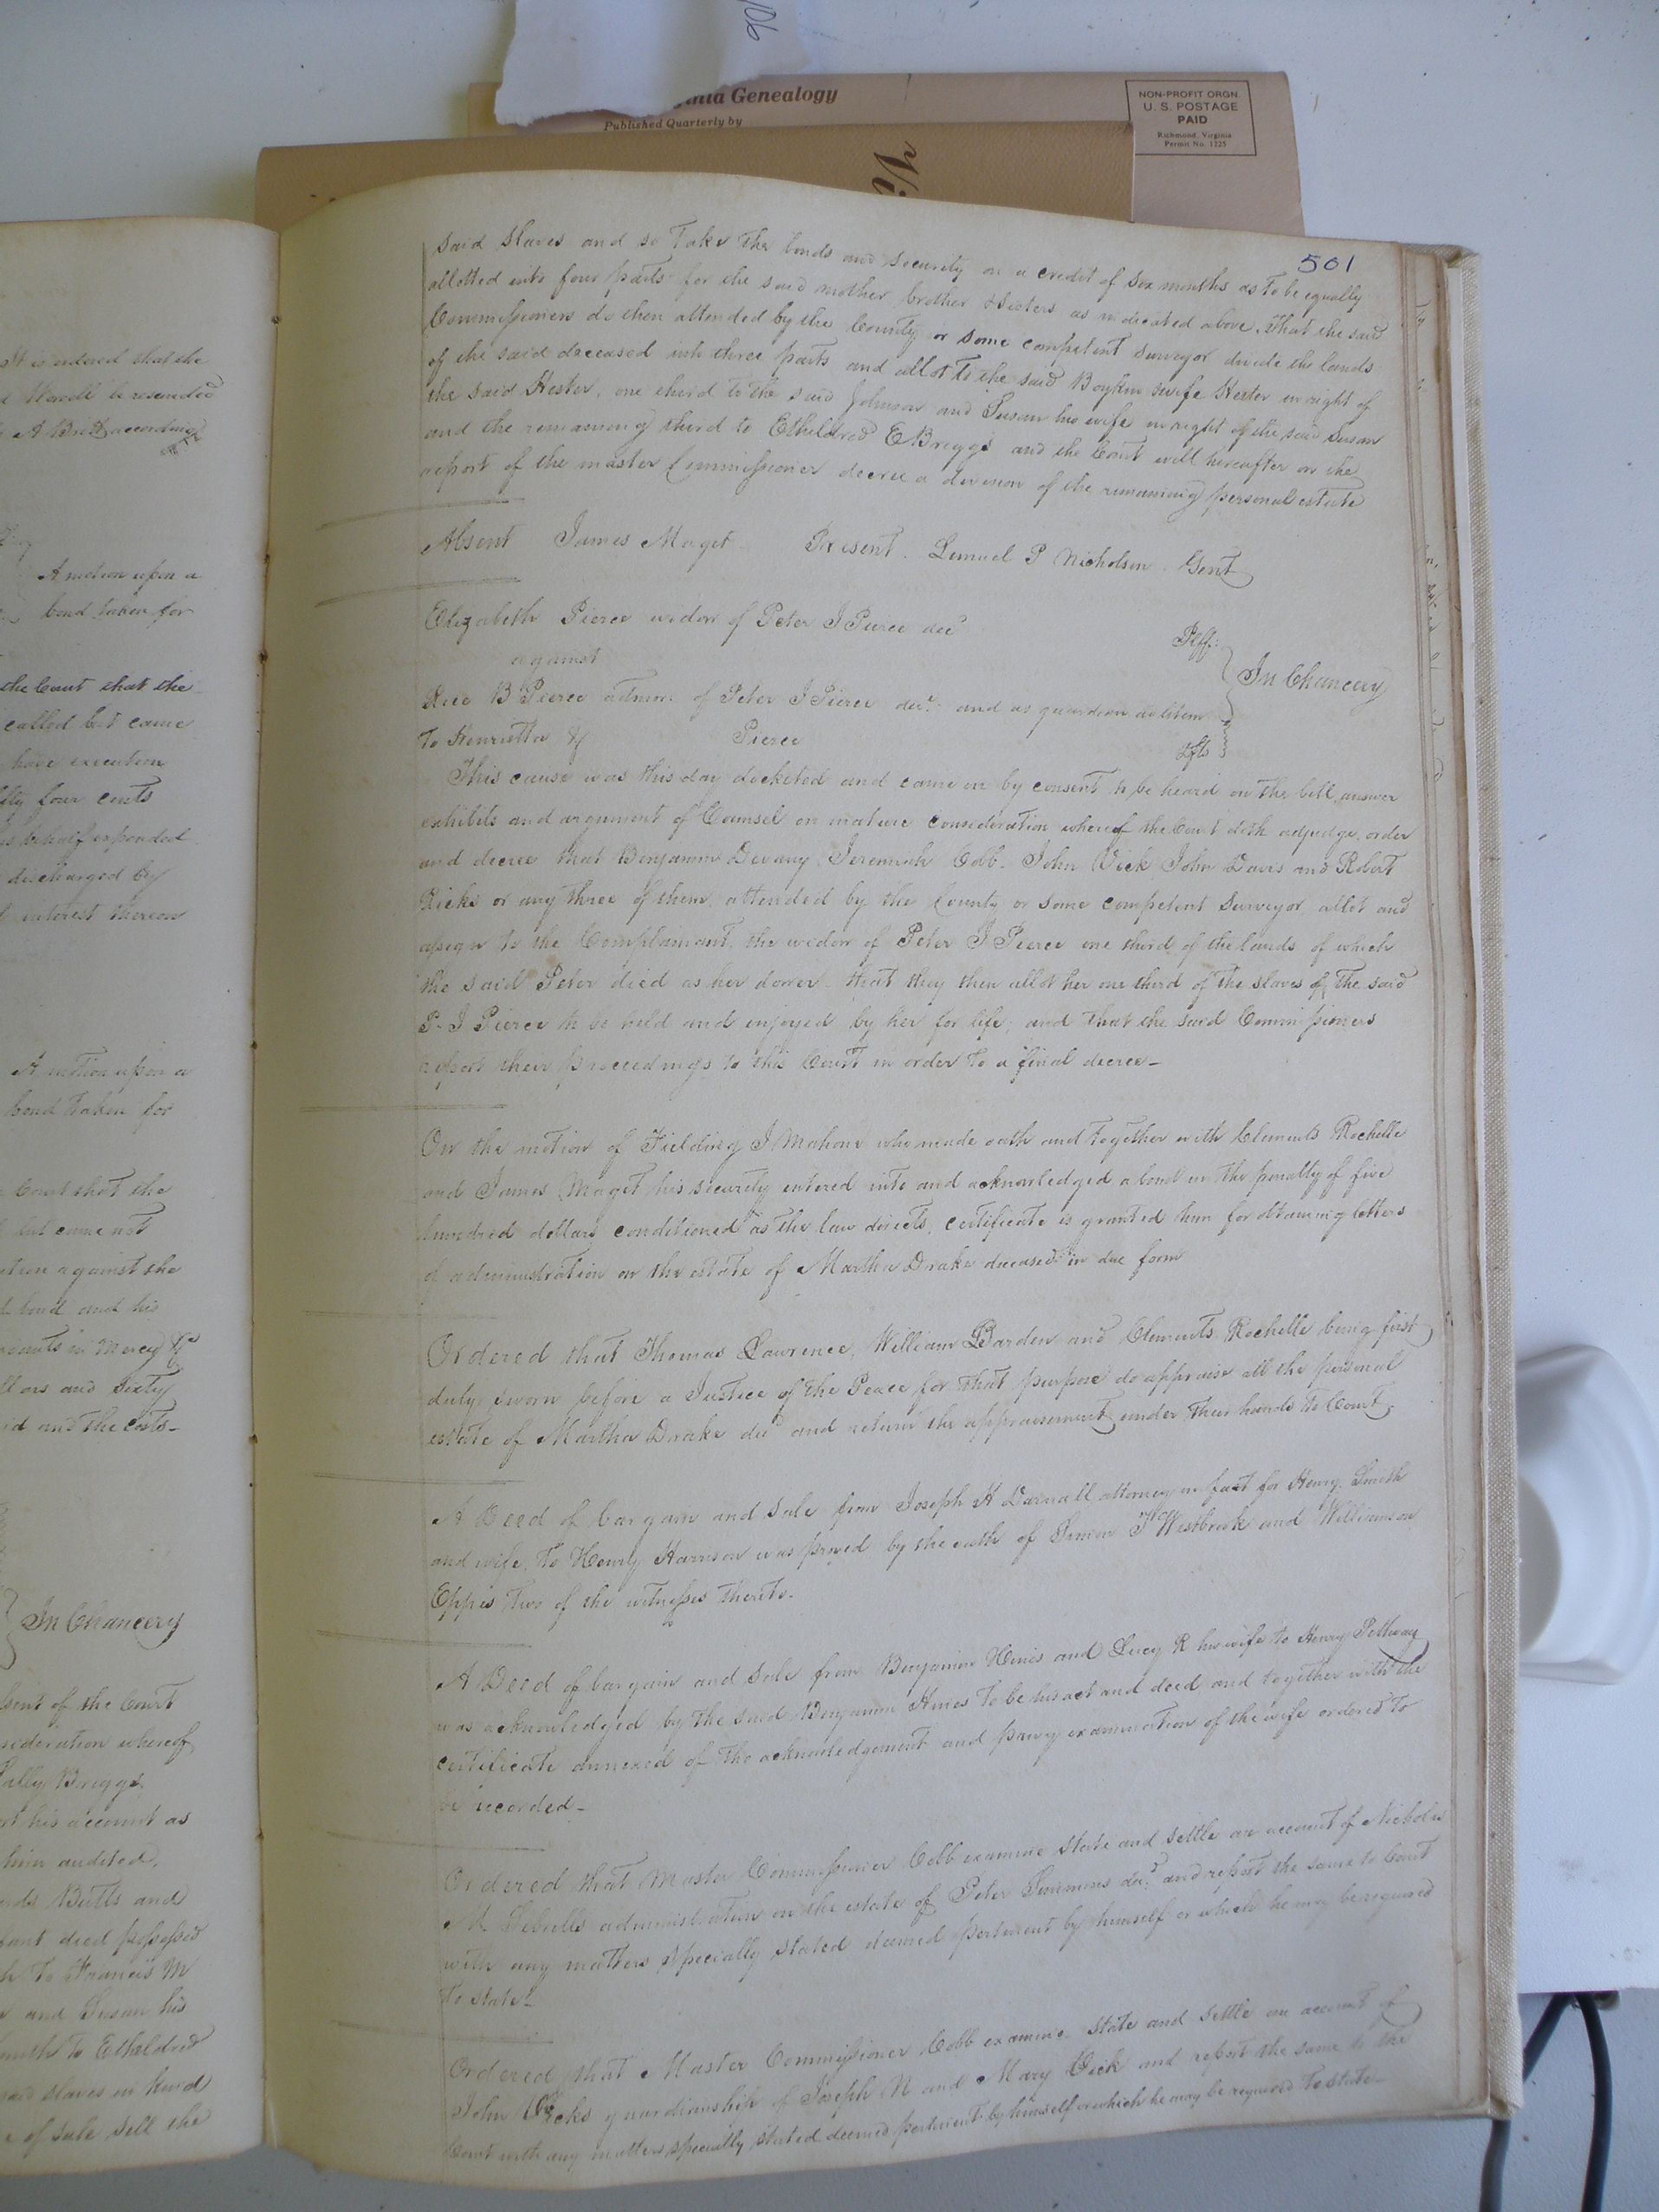 90
Virginia Genealogy
Published Quarterly by
NON-PROFIT ORGN.
U. S. POSTAGE
PAID
Richmond, Virginia
Permit No. 1225
It is ordered that the
be rescinded
A Britt according
A motion upon a
bond taken for
the Court that the
called but came
have execution
fifty four cents
behalf expended
discharged by
interest thereon
A motion upon a
bond taken for
Court that the
but came not
against the
bond and his
in mercy &c
and sixty
and the costs-
In Chancery
of the Court
consideration whereof
Sally Briggs
his account as
him audited,
Butts and
died possessed
To Francis M
and Susan his
to Etheldred
said slaves in kind
of sale sell the
501
said slaves and so take the bonds and security on a credit of six months as to be equally
allotted into four parts for the said mother brother & sisters as indicated above. That the said
Commissioners do then attended by the County or some competent surveyor divide the lands
of the said deceased into three parts and allot to the said Boykin & wife Hester in right of
the said Hester, one third to the said Johnson and Susan his wife in right of the said Susan
and the remaining third to Etheldred E Briggs and the Court will hereafter on the
report of the master Commissioner decree a division of the remaining personal estate
Absent James Maget Present. Lemuel P Nicholson. Gent
Elizabeth Pierce widow of Peter J Pierce decd
Plff:
against
In Chancery
Rice B Pierce admor. of Peter J Pierce decd. and as guardian ad litem
To Henrietta &c Pierce
dfts
This cause was this day docketed and came on by consent to be heard on the bill, answer
exhibits and argument of Counsel on mature consideration whereof the Court doth adjudge, order
and decree that Benjamin Devany Jeremiah Cobb. John Vick John Davis and Robert
Ricks or any three of them, attended by the County or some competent surveyor allot and
assign to the Complainant, the widow of Peter J Pierce one third of the lands of which
the said Peter died as her dower. that they then allot her one third of the slaves of the said
P. J Pierce to be held and enjoyed by her for life, and that the said Commissioners
report their proceedings to this Court in order to a final decree-
On the motion of Fielding J Mahone who made oath and together with Clements Rochelle
and James Maget his security entered into and acknowledged a bond in the penalty of five
hundred dollars conditioned as the law directs, certificate is granted him for obtaining letters
of administration on the estate of Martha Drake deceased in due form
Ordered that Thomas Lawrence, William Barden and Clements Rochelle being first
duly sworn before a Justice of the Peace for that purpose do appraise all the personal
estate of Martha Drake decd and return the appraisement under their hands to Court.
A Deed of bargain and sale from Joseph H Darnall attorney in fact for Henry Smith
and wife, to Henry Harrison was proved by the oath of Simon T Westbrook and Williamson
Eppes two of the witnesses thereto.
A Deed of bargain and sale from Benjamin Hines and Lucy R his wife to Henry Pethway
was acknowledged by the said Benjamin Hines to be his act and deed, and together with the
certificate annexed of the acknowledgement and privy examination of the wife ordered to
be recorded-
Ordered that Master Commissioner Cobb examine state and settle an account of Nicholas
M Sebrells administration on the estate of Peter Simmons decd. and report the same to Court
with any matters specially stated deemed pertinent by himself or which he may be required
To state-
Ordered that Master Commissioner Cobb examine state and settle an account of
John Vicks guardianship of Joseph N and Mary Vick and report the same to the
Court with any matters specially stated deemed pertinent by himself or which he may be required to state-